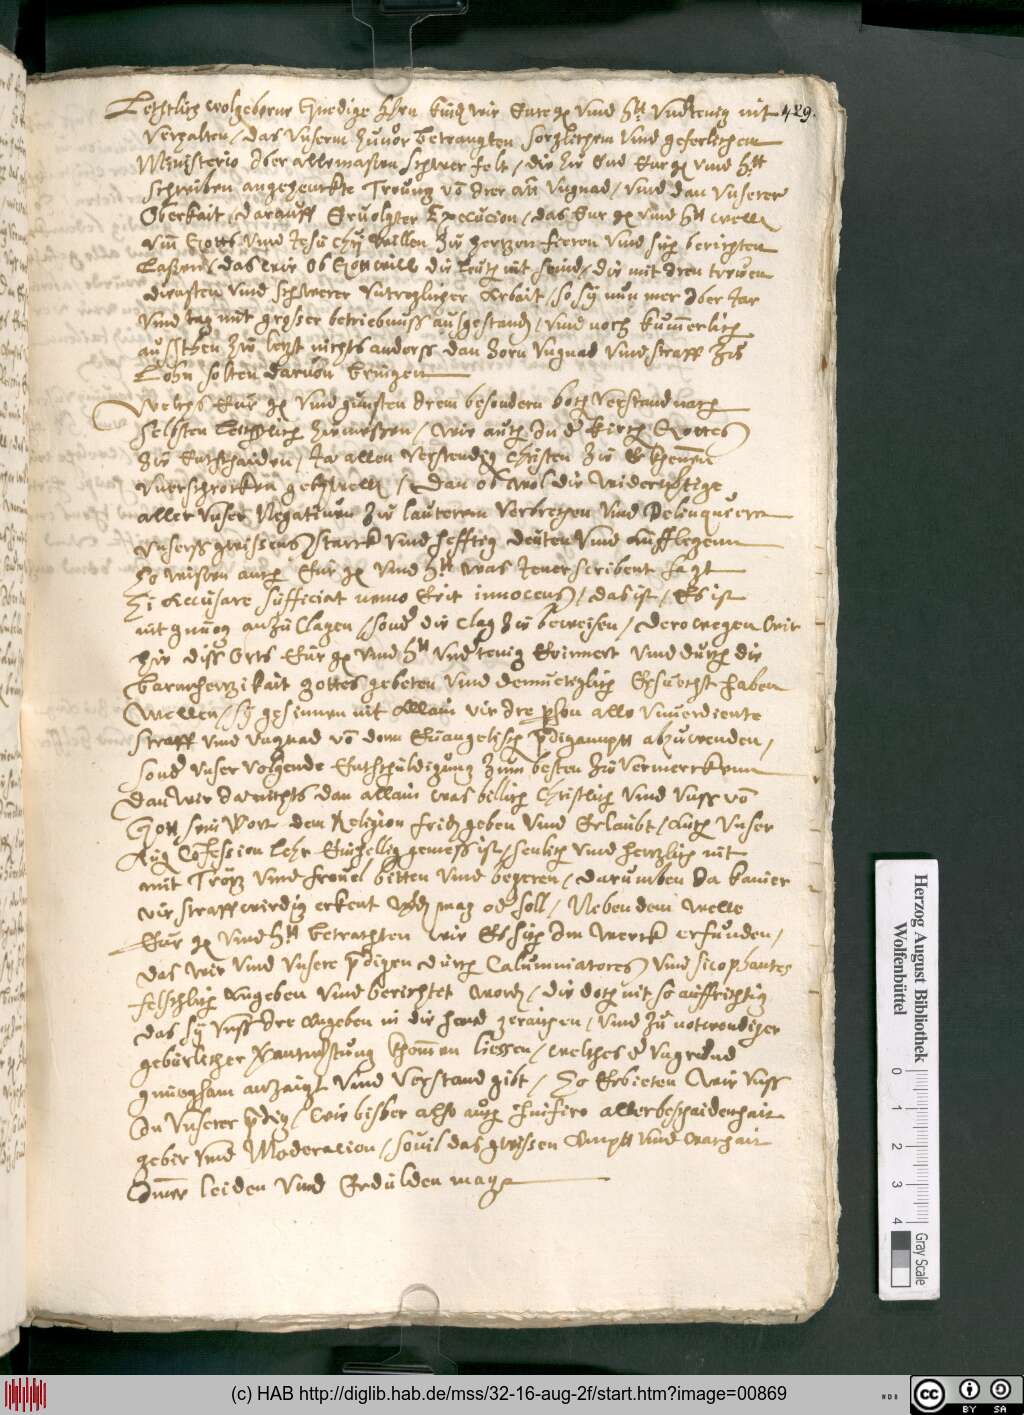 429.
Letztlich wolgeborne Gnedige Hern künd wir Eur g. vnd H. vndtenig nit
verhalten, das vnserm zuuor betrangten sorglichem vnd geferlichem
Ministerio aber allermasten schwer felt, die zů End Eur g. vnd H.
schreiben angehenckte Trouung vō vnd vngnad, vnd dan vnserer
Oberkait, darauff Eruolgter Execution, das Eur g. vnd H. welle
vm Gottes vnd Jesu willen zů hertzen fieren vnd sich berichten
Lassen, das wir ob Gott will die leuth nit seind, die mit tröwen
diensten vnd schwerer vntreglicher Arbeit, so sy nun mer Aber Jar
vnd tag mit grosser betriebnuss ausgestanden, vnd noch kummerlich
zů letzt nichts anderss dan Zorn vngnad vnd straff zů
Lohn solten daruon bringen
Welches Eur g. vnd gunsten besondern hoch verstand nach
selbsten leichtlich zuermessen, wir auch in d kirchen Gottes
zů Entschaiden, Ja allen verstendig Christen zů Erkhennen
vnerschrocken, Dan ob wol die widerwertige
aller vnser Negatiuen zů lauterem verbrechen vnd Delinquieren
vnserss gwissens starck vnd hefftig deuten vnd aufflegenn
So wissen auch Eur g. vnd H. was Jener scribent sagt
Si Accusare sufficiat nemo Erit innocens, das ist, Es ist
nit gnuog anzů Clagen, sond die Clag zů beweisen, Derowegen wir
hie diss Orts Eur g. vnd H. vndtenig Erinnert vnd durch die
barmhertzikait gottes gebeten vnd demuetiglich Ersuecht haben
Wellen, sy gesinnen nit Allain vir dre pson alle vnuerdiente
straff vnd vngnad vō dem Euangelisch pdigampt abzuwenden,
sond vnser volgende Entschuldigung zum besten zů vermerckenn
Dan wir Ja nichts dan allain was billich Christlich vnd vnss vō
Gott sein Wort dem Religion friden geben vnd Erlaubt, Auch vnser
Aug Cōfession lehr Einhellig gemess ist, senlich vnd hertzlich nit
mit Trotz vnd freuel bitten vnd begeren, darumben Ja kainer
vir straffwirdig erkent werden mag od soll, Neben dem welle
Eur g. vnd H. betrachten wie Es sich im werck erfunden,
das wir vnd vnsere pdigen durch Calumniatores vnd sicophantes
felschlich Angeben vnd berichtet worden, die doch nit so auffrichtig
das sy vnss dre angeben in die hend geraichen, vnd zů notwendiger
gebürlicher verantwortung khommen liessen, welches d vngrund
gnuegsam anzaigt vnd verstand gibt, So Erbieten wir vnss
In vnserer pdig, wie bisher also auch hinfiro aller beschaidenhait
gebir vnd Moderation, souil das gwissen Ampt vnd warhait
Immer leiden vnd Erdulden mag
Herzog August Bibliothek
Wolfenbüttel
0 1 2 3 4
Gray Scale
(c) HAB http://diglib.hab.de/mss/32-16-aug-2f/start.htm?image=00869
WDB
cc BY SA